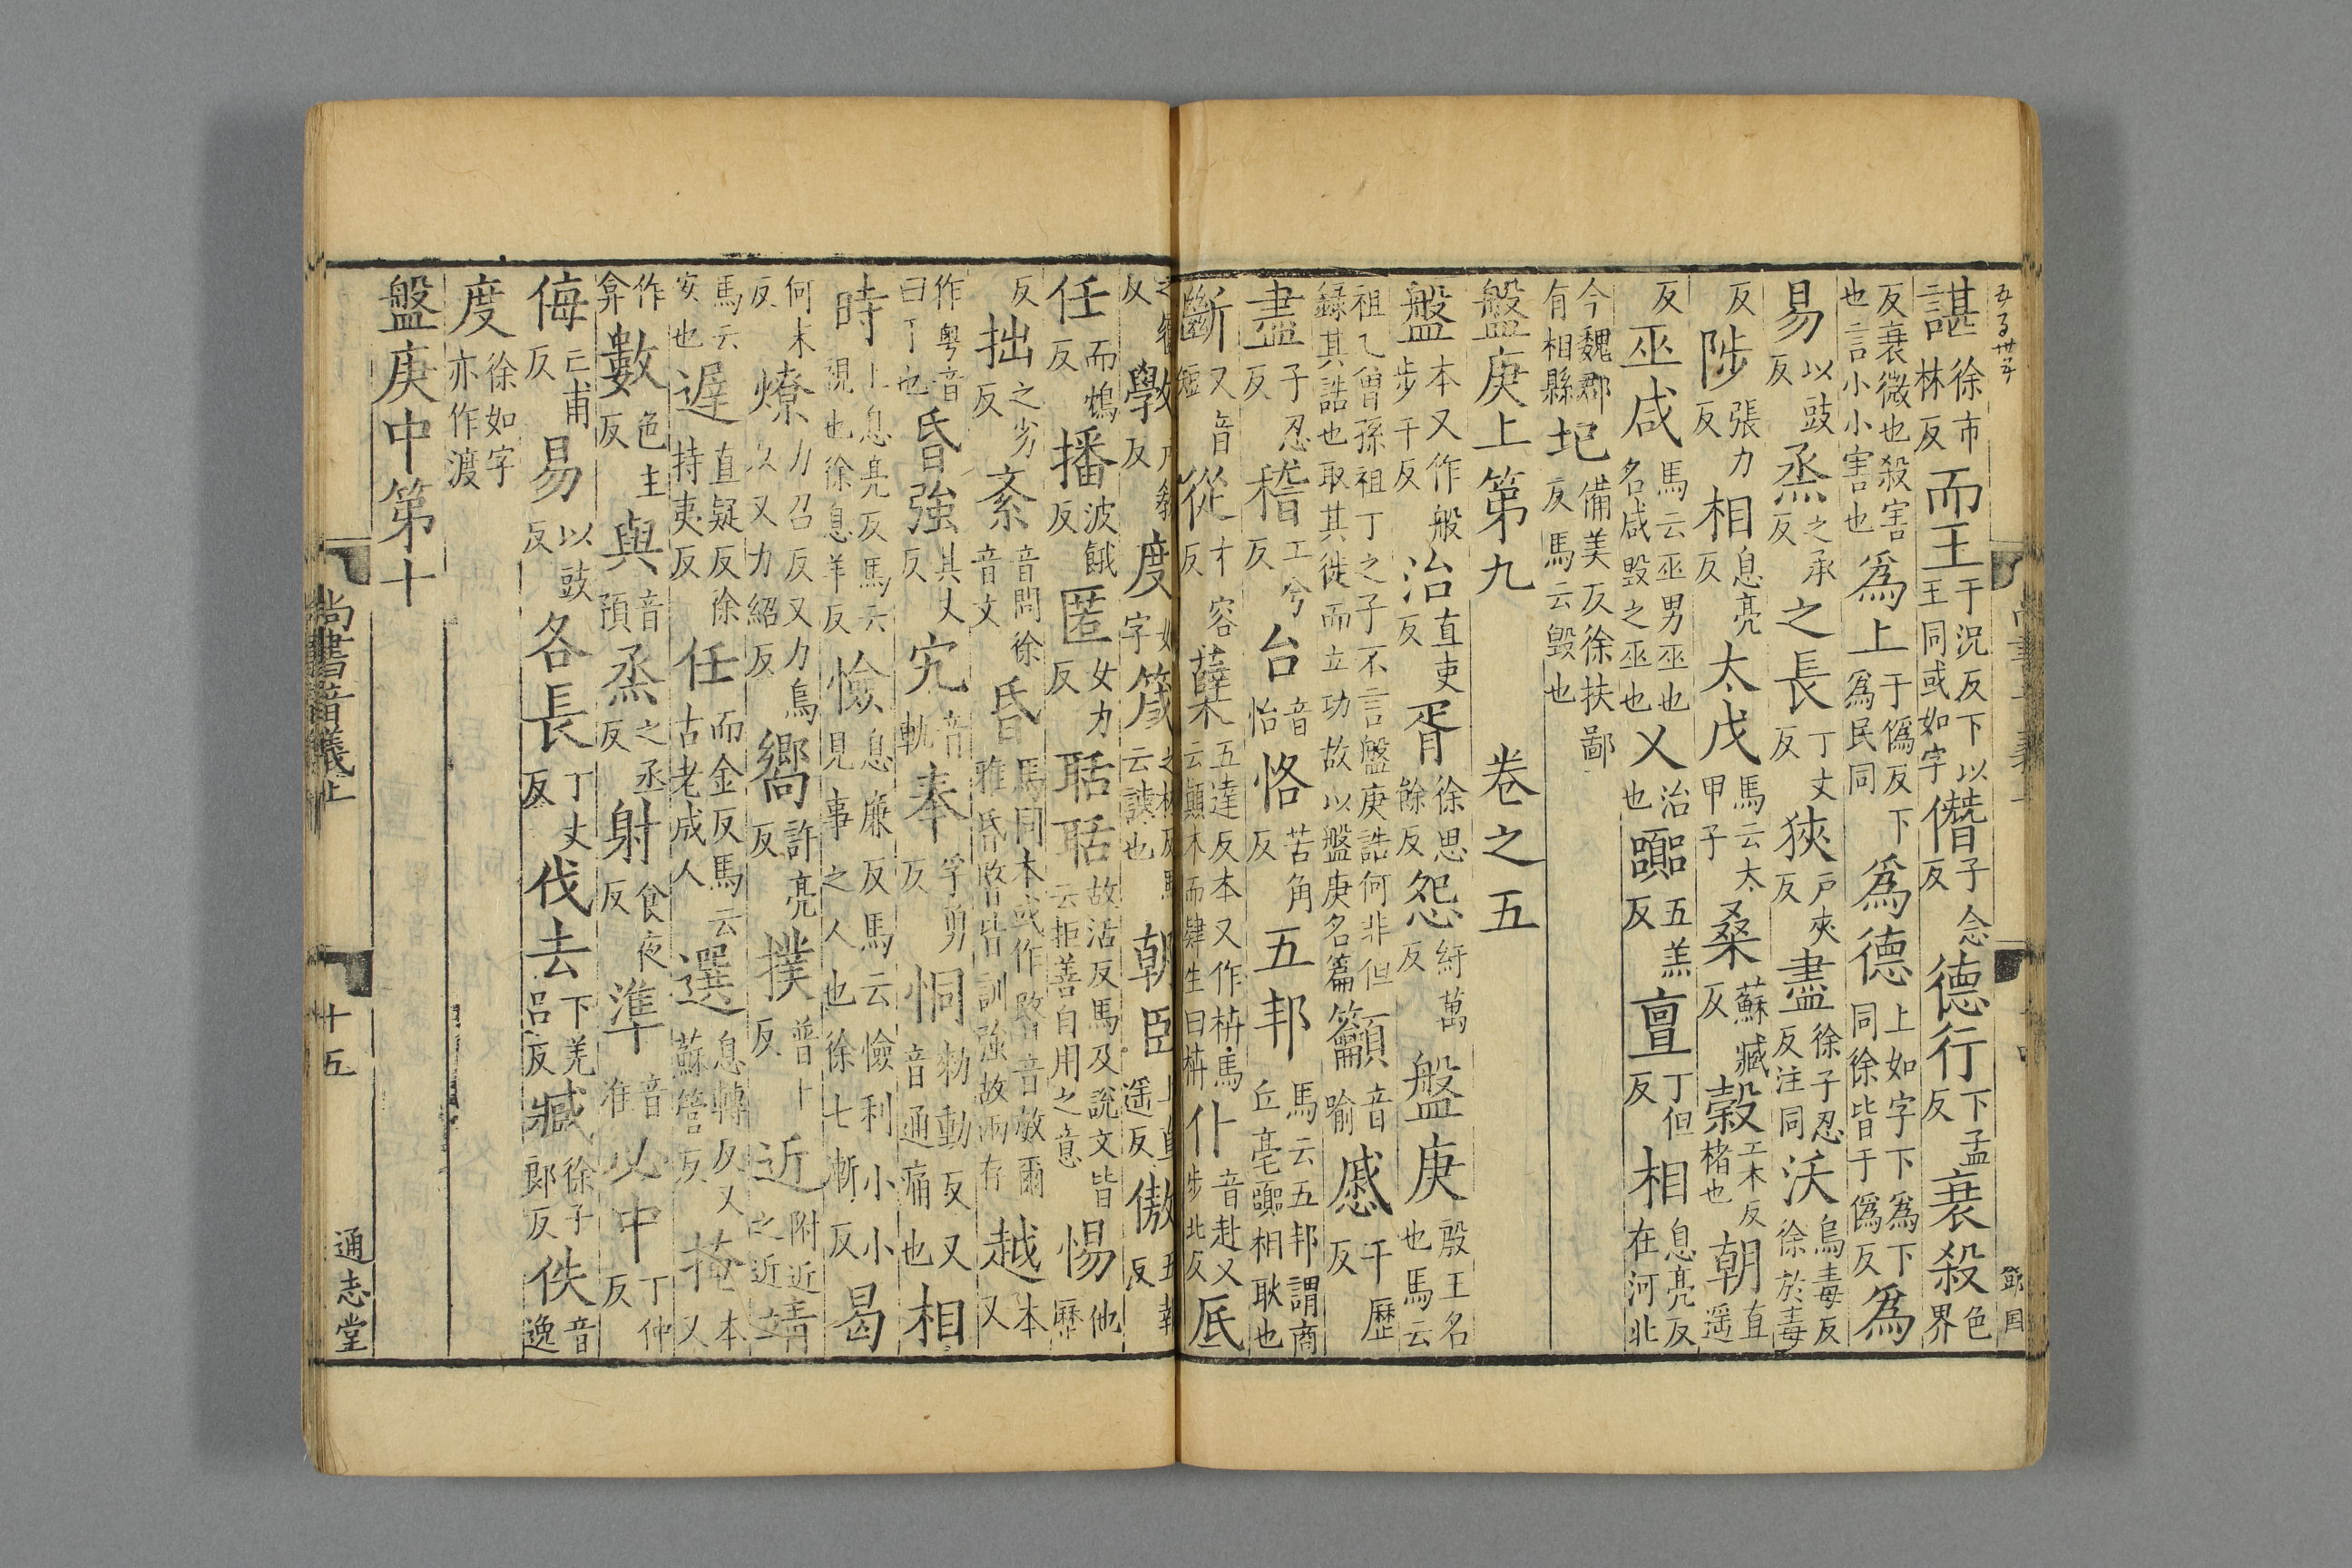 諶徐市林反而王于況反下以王同或如字僭子念反德行下孟反衰殺色界
反衰微也殺害也言小小害也爲上于僞反下爲民同爲德上如字下爲下同徐皆于僞反爲
易以豉反烝之承反之長丁丈反狹戶夾反盡徐子忍反注同沃烏毒反徐於毒
反陟張力反相息亮反太戊馬云太甲子桑蘇臧反榖工木反楮也朝直遥
反巫咸馬云巫男巫也名咸毁之巫也乂治也嚻五羔反亶丁但反相息亮反在河北
今魏郡有相縣圮備美反徐扶鄙反馬云毁也
盤庚上第九 卷之五
盤本又作般步干反治直吏反胥徐思餘反怨紆萬反盤庚殷王名也馬云
祖乙曾孫祖丁之子不言盤庚誥何非但錄其誥也取其徙而立功故以盤庚名篇籲音喻慼千歷反
盡子忍反稽工兮反台音怡恪苦角反五邦馬云五邦謂商丘亳嚻相耿也
斷又音短從才容反蘖五達反本又作枿馬云顚木而肄生曰枿仆音赴又步北反厎
反斆反度字箴云諫也朝臣遥反傲五報反
任而鴆反播波餓反匿女力反聒聒故活反馬及說文皆云拒善自用之意惕他歷
反拙之劣反紊音問徐音文昏馬同本或作暋音敏爾雅昏暋皆訓強故兩存越本又
作粤音曰于也昏強其丈反宄音軌奉孚勇反恫勑動反又音通痛也相
時上息亮反馬云視也徐息羊反憸息廉反馬云憸利小小見事之人也徐七漸反曷
何末反燎力召反又力鳥反又力紹反嚮許亮反撲普卜反近附近之近靖
馬云安也遲直疑反徐持夷反任而金反馬云古老成人選息轉反又蘇管反掩本又
作弇數色主反與音預烝之丞反射食夜反準音准以中丁仲反
侮亡甫反易以豉反各長丁丈反伐去下羌呂反臧徐子郎反佚音逸
度徐如字亦作渡
盤庚中第十
尚書音義上
十五
通志堂